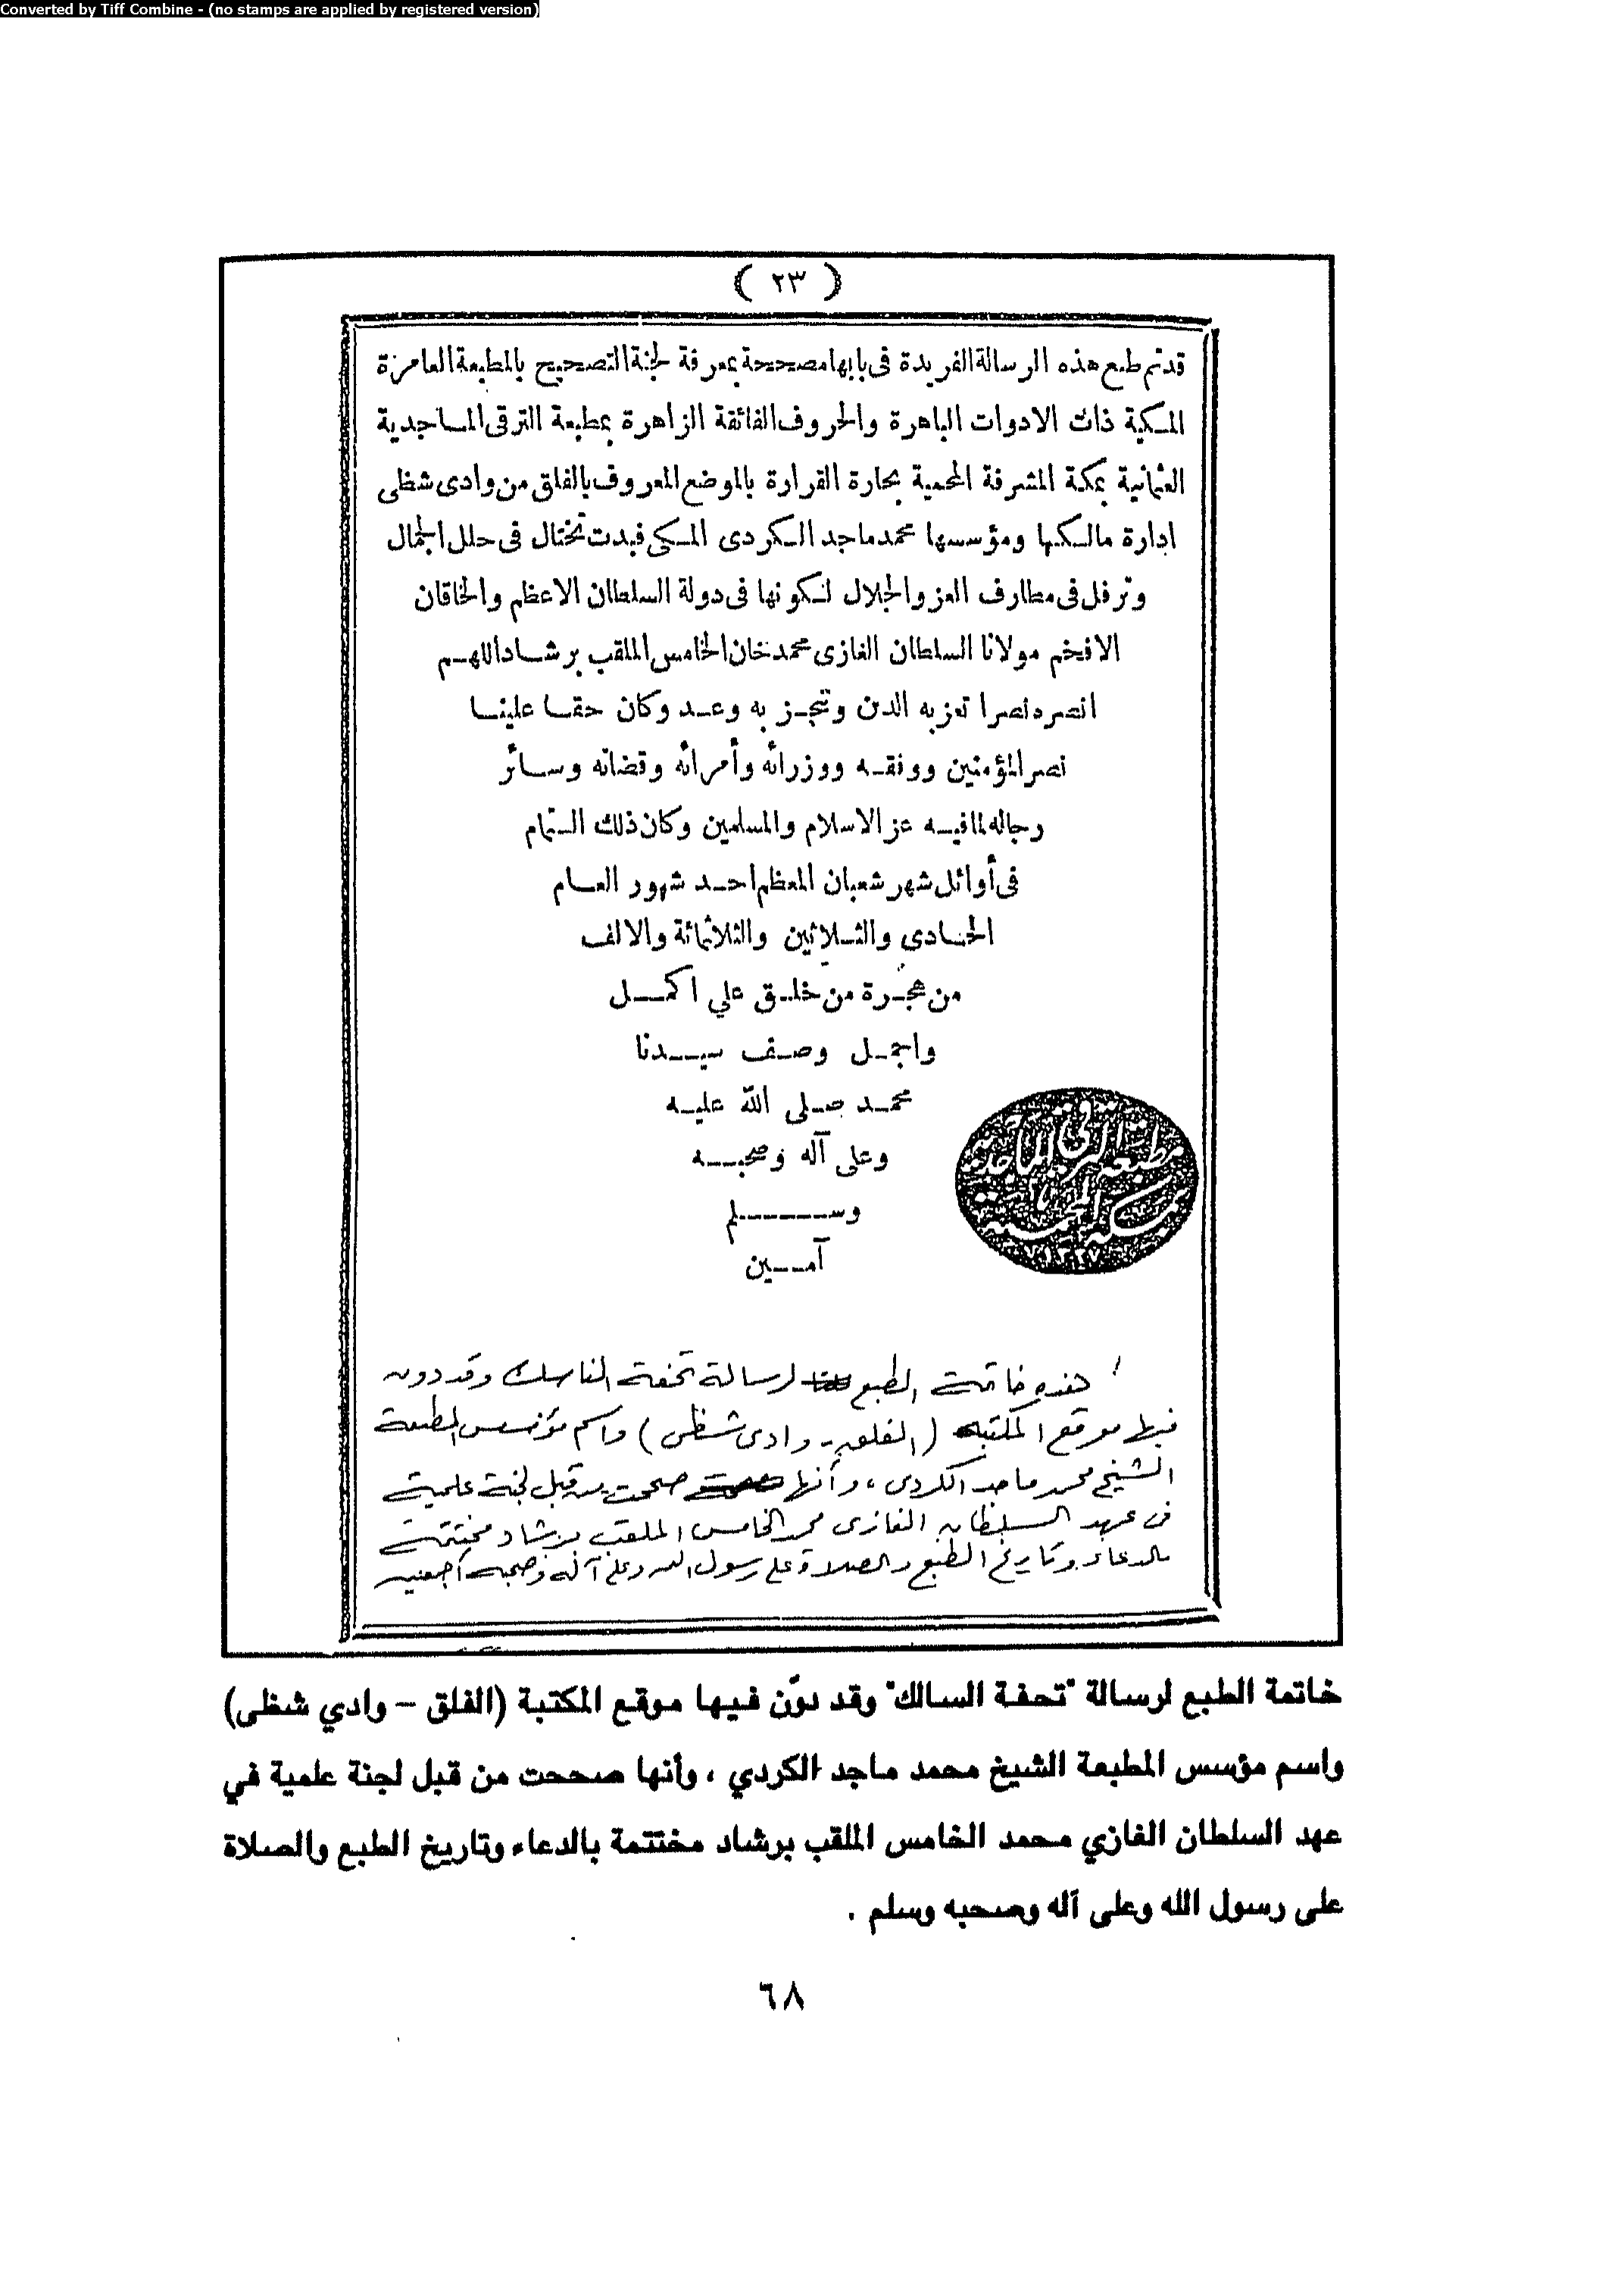 Converted by Tiff Combine - (no stamps are applied by registered version)
( ٢٣ )
قدتم طبع هذه الرسالة الفريدة فى بابها مصححة بمعرفة لجنة التصحيح بالمطبعة العامرة
المكية ذات الادوات الباهرة والحروف الفائقة الزاهرة بمطبعة الترقى الماجدية
العثمانية بمكة المشرفة المحمية بحارة القرارة بالموضع المعروف بالفلق من وادى شظى
ادارة مالكها ومؤسسها محمد ماجد الكردى المكى فبدت تختال فى حلل الجمال
وترفل فى مطارف العز والجلال لكونها فى دولة السلطان الاعظم والخاقان
الافخم مولانا السلطان الغازى محمد خان الخامس الملقب برشاد اللهم
انصره نصرا تعز به الدين وتنجز به وعد وكان حقا علينا
نصر المؤمنين ووفقه ووزرائه وأمرائه وقضاته وسائر
رجاله لما فيه عز الاسلام والمسلمين وكان ذلك التمام
فى أوائل شهر شعبان المعظم احد شهور العام
الحادى والثلاثين والثلاثمائة والالف
من هجرة من خلق علي اكمل
واجمل وصف سيدنا
محمد صلى الله عليه
وعلى آله وصحبه
وسلم
آمين
مطبعة الترقى الماجدية
بمكة المحمية
١٣٢٧
هذه خاتمة الطبع لرسالة تحفة الناسك وقد دون
فيها موقع المكتبة (الفلق - وادى شظى) واسم مؤسس المطبعة
الشيخ محمد ماجد الكردى، وأنها صححت من قبل لجنة علمية
فى عهد السلطان الغازى محمد الخامس الملقب برشاد مختتمة
بالدعاء وتاريخ الطبع والصلاة على رسول الله وعلى آله وصحبه أجمعين
خاتمة الطبع لرسالة "تحفة السالك" وقد دوّن فيها موقع المكتبة (الفلق – وادي شظى)
واسم مؤسس المطبعة الشيخ محمد ماجد الكردي ، وأنها صححت من قبل لجنة علمية في
عهد السلطان الغازي محمد الخامس الملقب برشاد مختتمة بالدعاء وتاريخ الطبع والصلاة
على رسول الله وعلى آله وصحبه وسلم .
٦٨